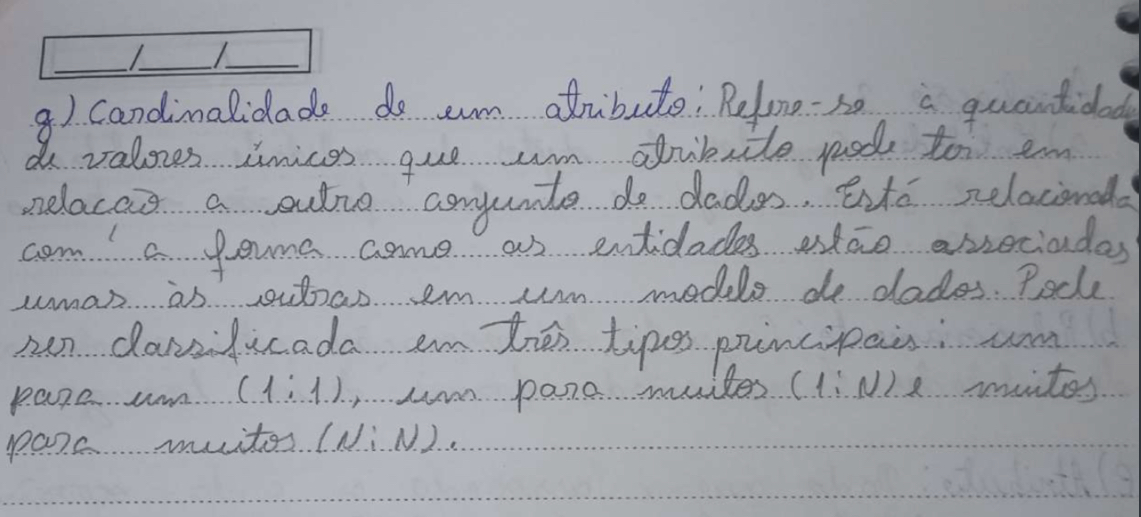 ___/___/___
g) Cardinalidade de um atributo: Refere-se à quantidade
de valores únicos que um atributo pode ter em
relação a outro conjunto de dados. Está relacionada
com a forma como as entidades estão associadas
umas às outras em um modelo de dados. Pode
ser classificada em três tipos principais: um
para um (1:1), um para muitos (1:N) e muitos
para muitos (N:N).